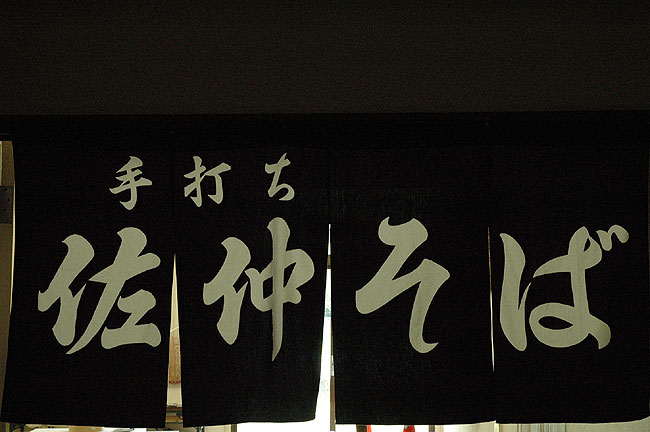 手打ち
佐仲そば